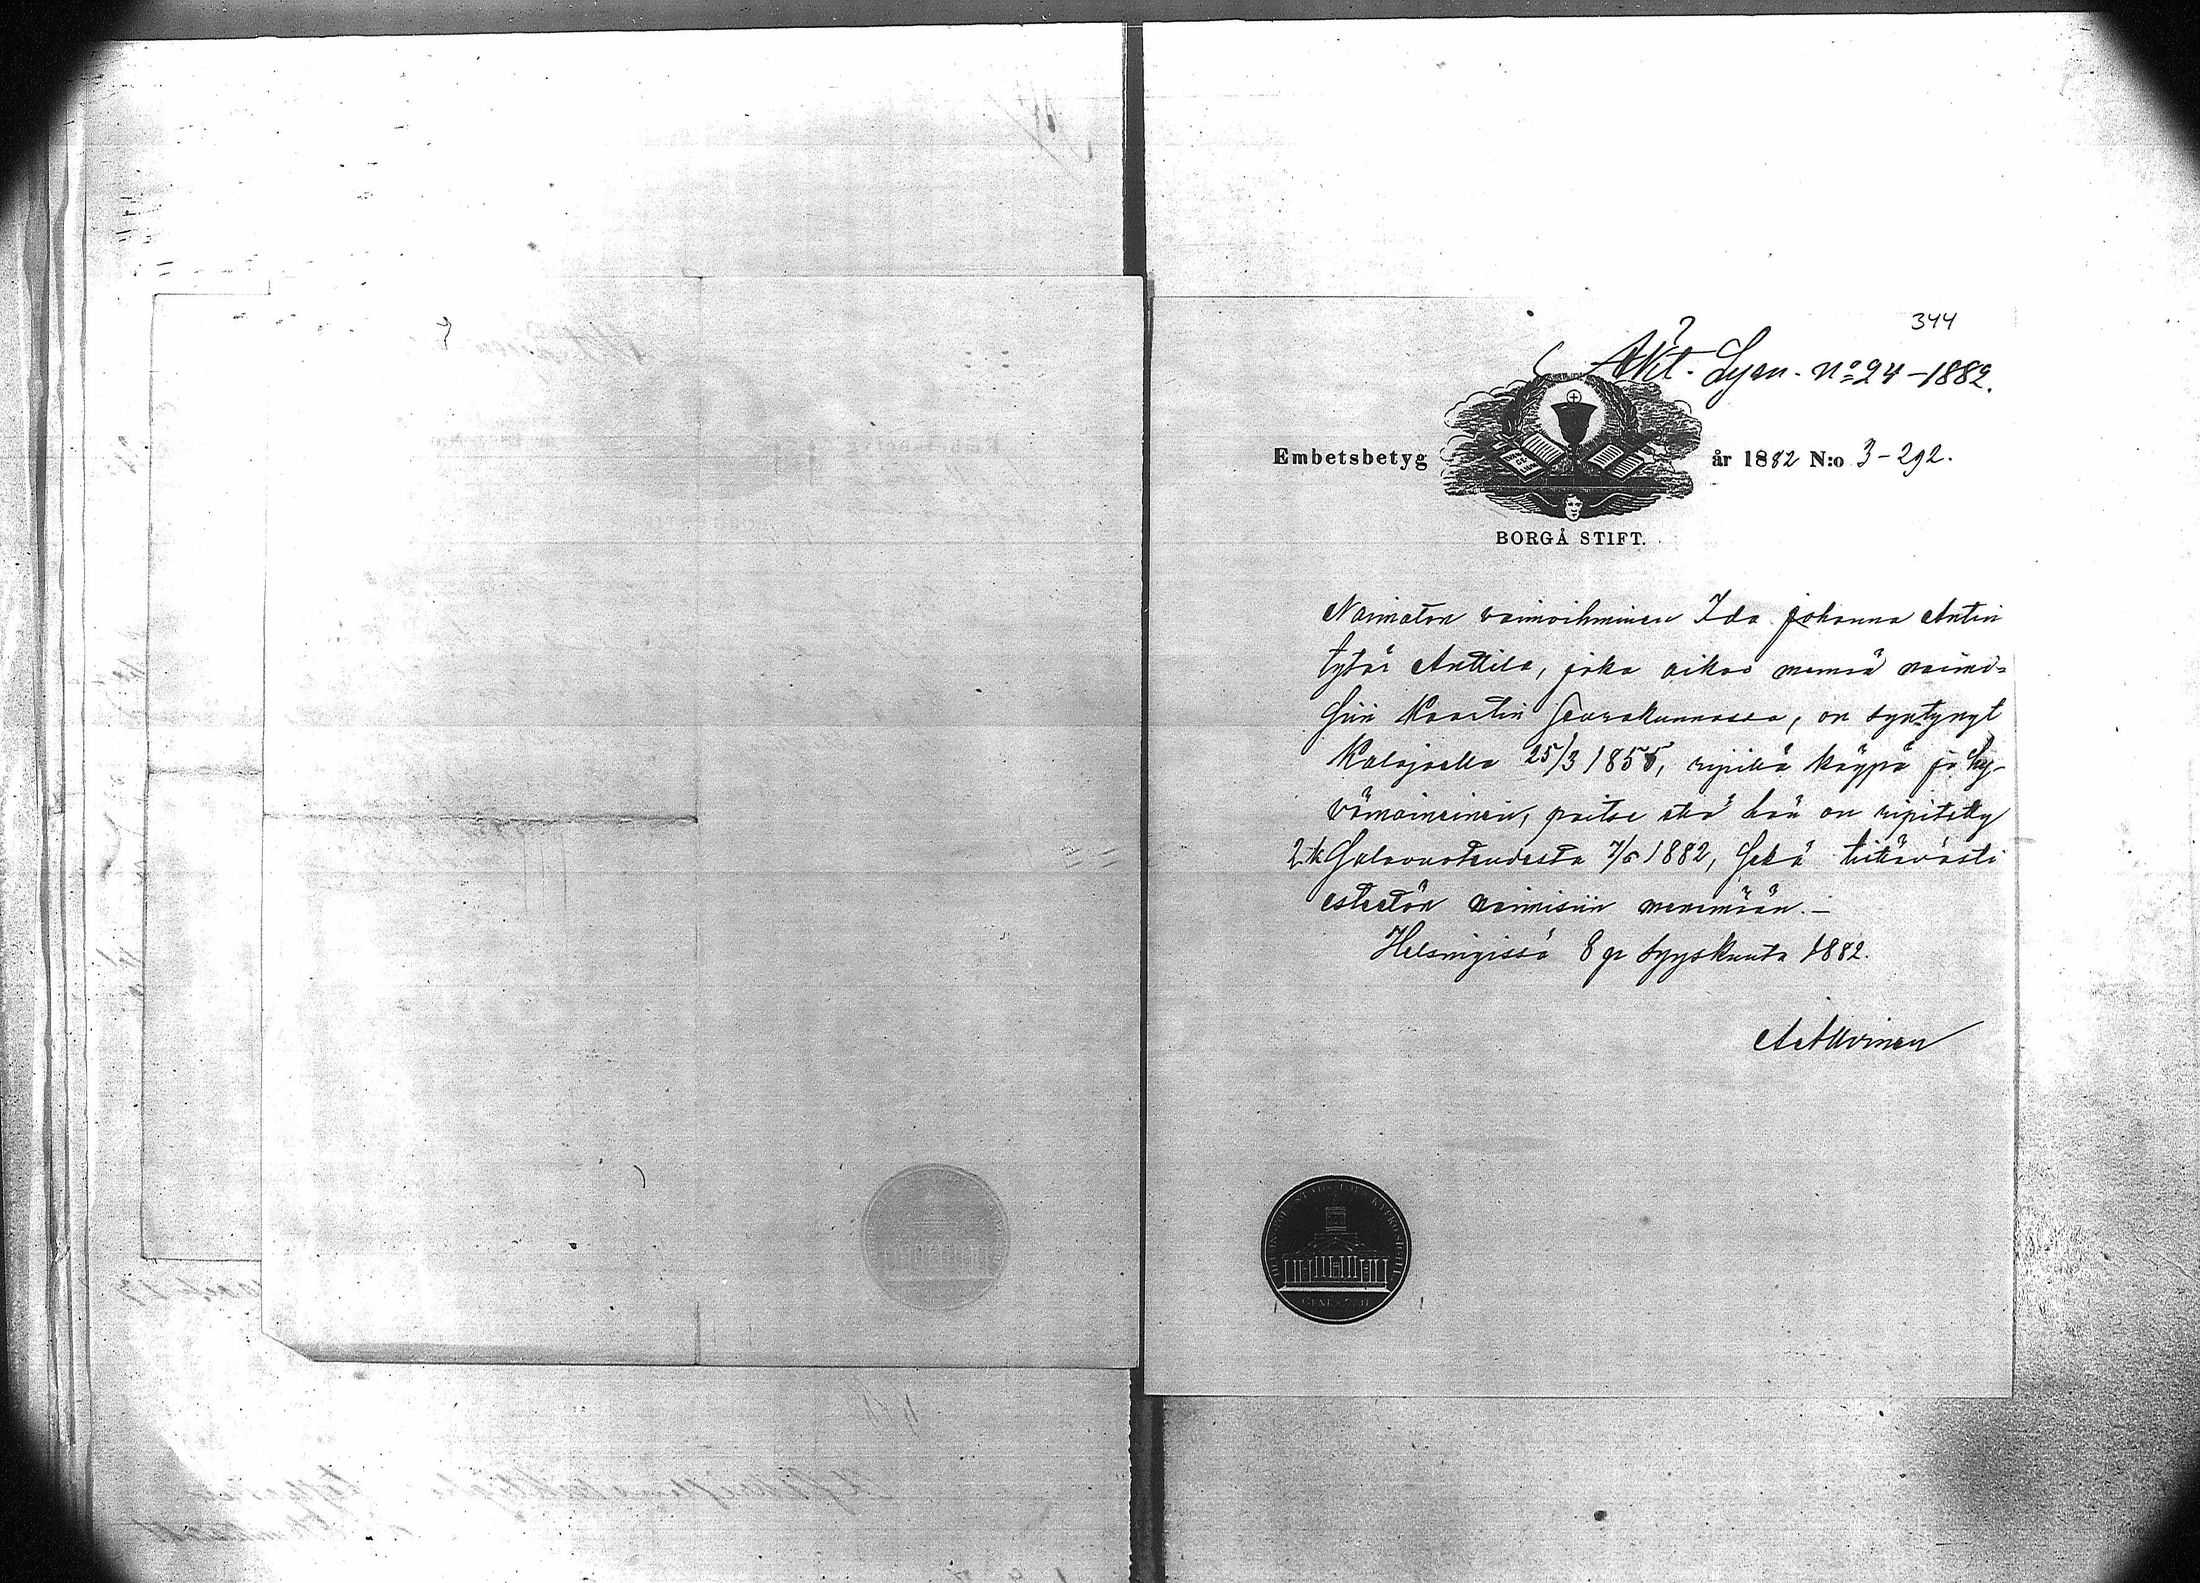 344
Akt. Lysn. No 24-1882.
Embetsbetyg år 1882 N:o 3-292.
BORGÅ STIFT.
Naimaton vaimoihminen Ida Johanna Antin
tytär Anttila, joka aikoo mennä naimi-
siin Kaartin seurakunnassa, on syntynyt
Kalajoella 25/3 1855, ripillä käypä ja hy-
vämaineinen, paitse että hän on ripitetty
2 k salavuoteudesta 1882, sekä tiettävästi
esteetön naimisiin menemään. —
Helsingissä 8 p syyskuuta 1882.
GENES. 7.11